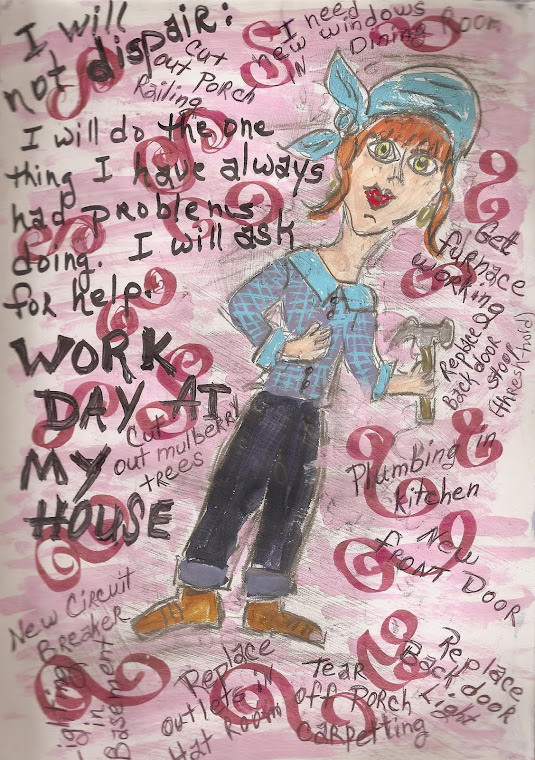 I will
not dispair:
Cut
out Porch
Railing
I need
new windows
IN Dining Room
I will do the one
thing I have always
had problems
doing. I will ask
for help.
WORK
DAY AT
MY
HOUSE
Get
furnace
working
Replace
Back door
stoop
(threshhold)
Cut
out mulberry
trees
Plumbing in
kitchen
New
fRONT DOOR
New Circuit
Breaker
Lighting
in
Basement
Replace
outlets in
Hat Room
Tear
off Porch
Carpetting
Replace
Back door
Light